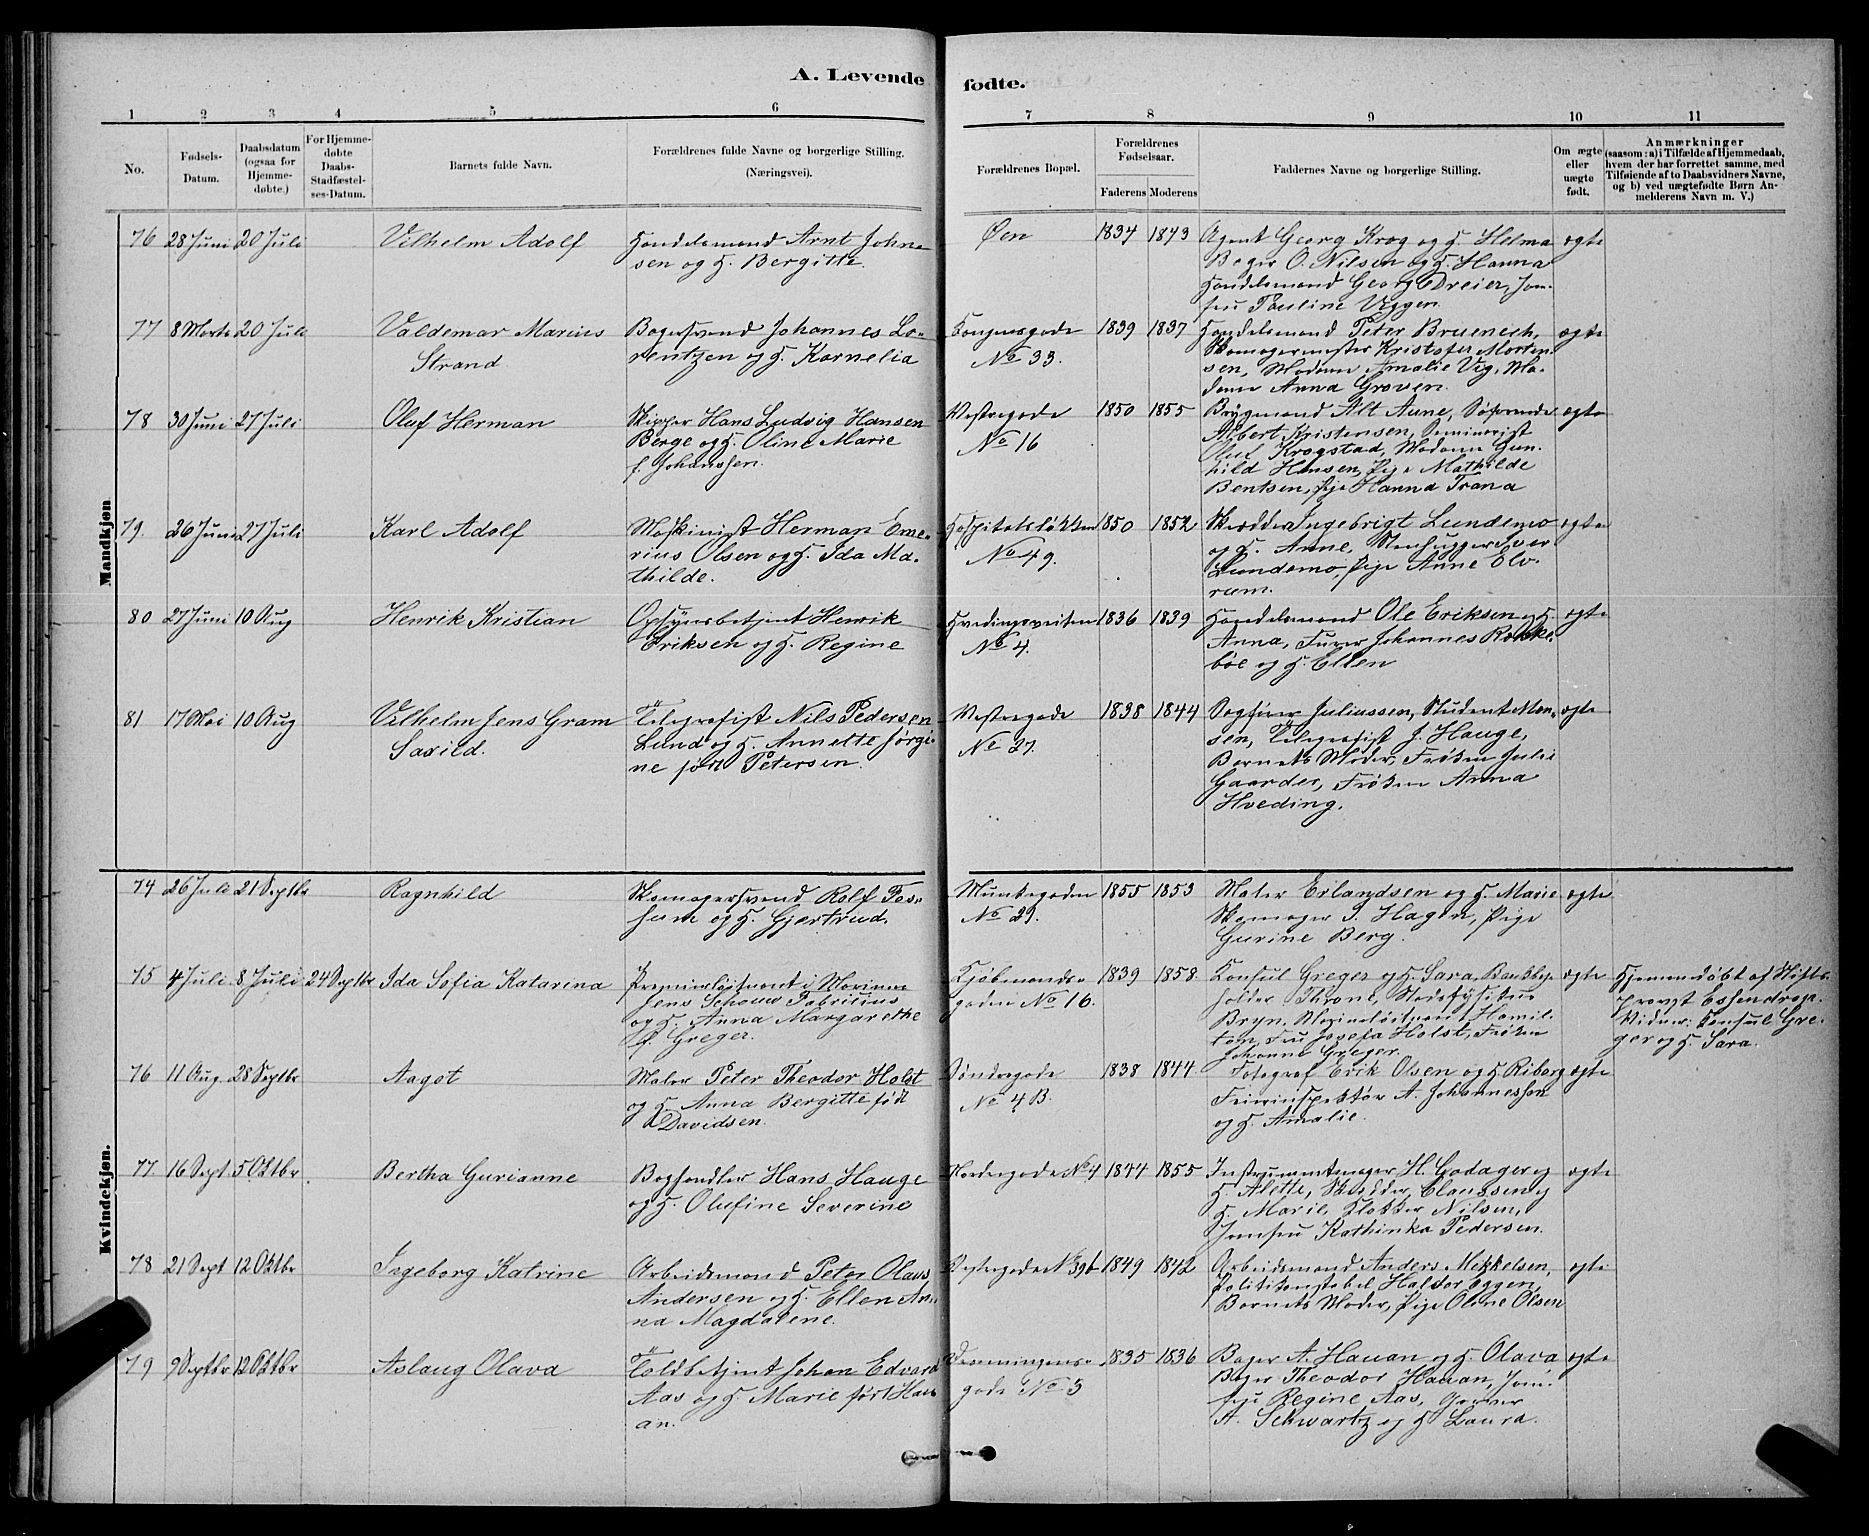 A. Levende fødte.
1 2 3 4 5 6 7 8 9 10 11
No.
Fødsels-
Datum.
Daabsdatum
(ogsaa for
Hjemme-
døbte.)
For Hjemme-
døbte
Daabs-
Stadfæstel-
ses-Datum.
Barnets fulde Navn.
Forældrenes fulde Navne og borgerlige Stilling.
(Næringsvei).
Forældrenes Bopæl.
Forældrenes
Fødselsaar.
Faderens Moderens
Faddernes Navne og borgerlige Stilling.
Om ægte
eller
uægte
født.
Anmærkninger
(saasom: a) i Tilfælde af Hjemmedaab,
hvem der har forrettet samme, med
Tilføiende af to Daabsvidners Navne,
og b) ved uægtefødte Børn An-
melderens Navn m. V.)
Mandkjøn
76 28 Juni 20 Juli
Vilhelm Adolf
Handelsmand Arnt Johan-
sen og H. Bergitte.
Øen
1834 1843
Agent Georg Krog og H. Helma
Bager O. Nilsen og H. Hanna
Handelsmand Georg Dreier, Jom-
fru Pauline Viggen
ægte
77 8 Marts 20 Juli
Valdemar Marius
Strand
Bagersvend Johannes Lo-
rentzen og H. Kornelia
Kongensgade
No 33.
1839 1837
Handelsmand Peter Bruenech,
Skomagermester Kristofer Morten-
sen, Madam Amalie Vig, Ma-
dam Anna Groven.
ægte
78 30 Juni 27 Juli
Oluf Herman
Skipper Hans Ludvig Hansen
Berge og H. Oline Marie
f. Johanssen.
Vestregade
No 16
1850 1855
Brygmand Alt Aune, Søfarende
Albert Kristensen, Seminarist
Oluf Krogstad, Madam Gun-
hild Hansen, Pige Mathilde
Bentsen, Pige Hanna Trana
ægte
79. 26 Juni 27 Juli
Karl Adolf
Maskinist Herman Eme-
rius Olsen og H. Ida Ma-
thilde.
Hospitalsløkken
No 49.
1850 1852
Skrædder Ingebrigt Lundemo
og H. Anne, Stenhugger Iver
Lundemo, Pige Anne Elv-
rum.
ægte
80 27 Juni 10 Aug
Henrik Kristian
Opsynsbetjent Henrik
Eriksen og H. Regine
Hvedingsveiten
No 4.
1836 1839
Handelsmand Ole Eriksen og H
Anna, Furer Johannes
bøe og H. Ellen
ægte
81 17 Mai 10 Aug
Vilhelm Jens Gram
Saxild.
Telegrafist Nils Pedersen
Lund og H. Annette Jørgi-
ne født Petersen.
Vestregade
No 27.
1838 1844
Sagfører Juliussen, Student
sen, Telegrafist J. Hauge,
Barnets Moder, Frøken Julie
Gaarder, Frøken Anna
Hveding.
ægte
Kvindekjøn.
74 26 Juli 21 Septbr
Ragnhild
Skomagersvend Rolf Fos-
sum og H. Gjertrud.
Munkegaden
No 29.
1855 1853
Maler Erlandsen og H. Marie
Skomager I. Hagen, Pige
Gurine Berg.
ægte
75 4 Juli 8 Juli 24 Septbr
Ida Sofia Katarina
Premierløjtnant i Marinen
Jens Schouw Fabritius
og H. Anna Margarethe
f. Greger.
Kjøbmands-
gaden No 16.
1839 1858.
Konsul Greger og H. Sara, Bankbog-
holder Thrane, Stadsfysikus
Bryn, Marineløjtnant Hamil-
ton, Fru Josefa Holst, Frøken
Johanne Greger.
ægte
Hjemmedøbt af Stifts-
provst Essendrop.
Vidner: Konsul Gre-
ger og H. Sara.
76 11 Aug. 28 Septbr
Aagot
Maler Peter Theodor Holst
og H. Anna Bergitte født
Davidsen.
Søndregade
No 4 B.
1838 1844
Fotograf Erik Olsen og H Riborg
Feierinspektør A. Johannessen
og H. Amalie.
ægte
77 16 Sept. 5 Oktbr
Bertha Gurianne
Boghandler Hans Hauge
og H. Olufine Severine
Nordregade No 4
1844 1855
Instrumentmager H. Godager og
H. Alette, Skrædder Claussen og
H. Marie, Nilsen,
Jomfru Kathinka Pedersen.
ægte
78 21 Sept 12 Oktbr
Ingeborg Katrine
Arbeidsmand Peter Olaus
Andersen og H. Ellen An-
na Magdalene.
Vestregade No 39b
1849 1842
Arbeidsmand Anders Mikkelsen,
Politikonstabel Haldor Eggen,
Barnets Moder, Pige Oline Olsen
ægte
79 9 Septbr 12 Oktbr
Aslaug Olava
Toldbetjent Johan Edvard
Aas og H. Marie født Hau-
an.
Dronningens-
gade No 3
1835 1836
Bager A. Hauan og H. Olava
Bager Theodor Hauan, Jom-
fru Regine Aas,
A. Schwartz og H Laura.
ægte